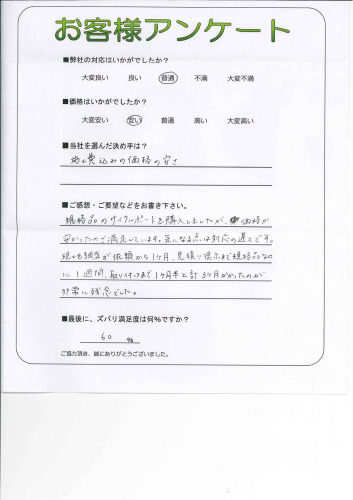 お客様アンケート
■弊社の対応はいかがでしたか？
大変良い　良い　普通　不満　大変不満
■価格はいかがでしたか？
大変安い　安い　普通　高い　大変高い
■当社を選んだ決め手は？
込みの価格の安さ
■ご感想・ご要望などをお書き下さい。
規格品のサイクルポートを購入しましたが、価格が
安かったので満足しています。気になる点は対応の遅さです。
現地調査が依頼から1ヶ月、見積り提示まで規格品なの
に1週間、取り付けまで1ヶ月半と計3ヶ月かかったのが
非常に残念でした。
■最後に、ズバリ満足度は何％ですか？
60 %
ご協力頂き、誠にありがとうございました。